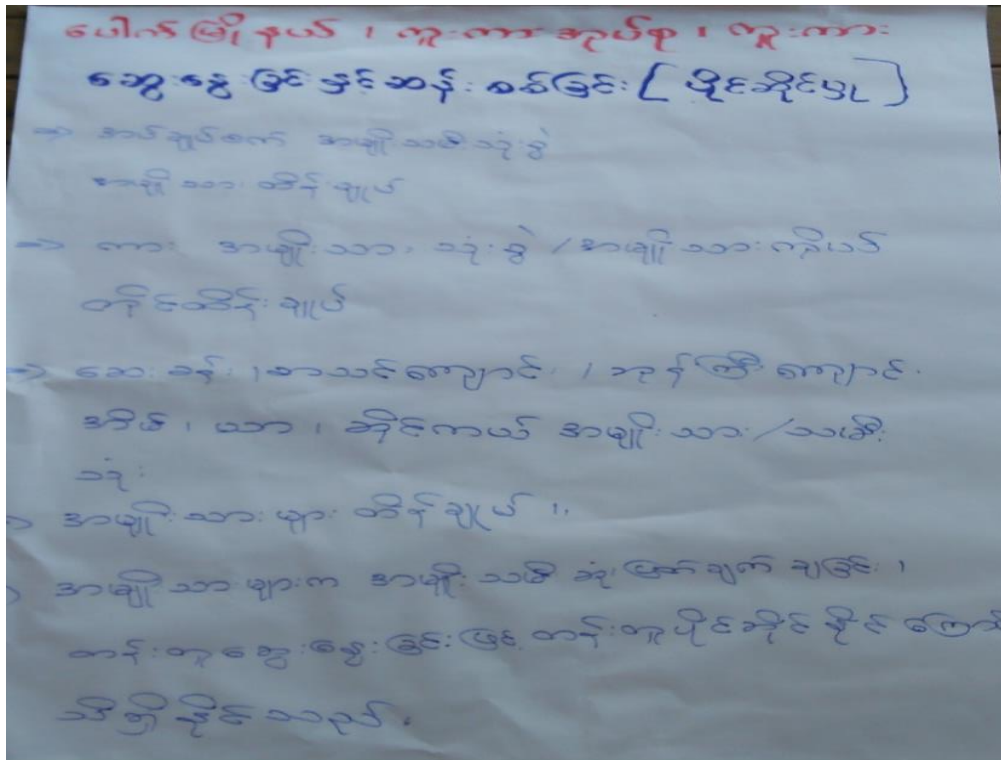 ပေါက်မြို့နယ်၊ ကူးကားအုပ်စု၊ ကူးကား
ဆွေးနွေးခြင်းနှင့်ဆန်းစစ်ခြင်း [ပိုင်ဆိုင်မှု]
⇒ အပ်ချုပ်စက် အမျိုးသမီးသုံးစွဲ
အမျိုးသား ထိန်းချုပ်
⇒ ကား အမျိုးသား သုံးစွဲ / အမျိုးသား
ထိန်းချုပ်
⇒ ဆေးခန်း၊ စာသင်ကျောင်း၊ ဘုန်းကြီးကျောင်း
အိမ်၊ ယာ၊ ဆိုင်ကယ် အမျိုးသား/သမီး
သုံး
အမျိုးသားများ ထိန်းချုပ်။
အမျိုးသားများက အမျိုးသမီး ဆုံးဖြတ်ချက် ချခြင်း၊
တန်းတူဆွေးနွေးခြင်းဖြင့် တန်းတူပိုင်ဆိုင်နိုင်
သိရှိနိုင်သည်။